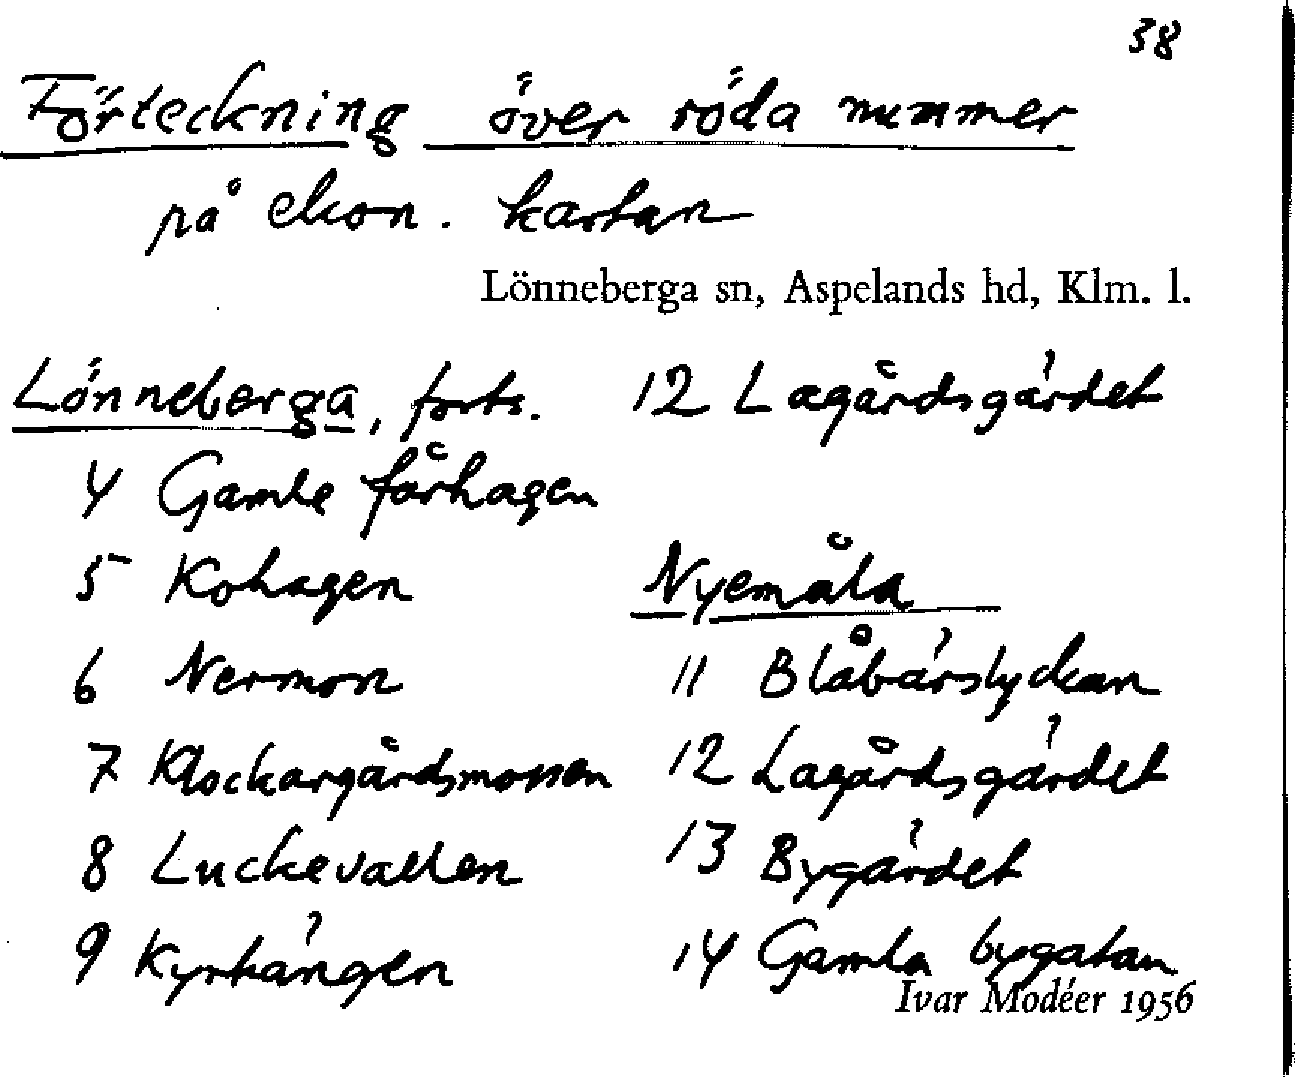 38
Förteckning över röda nummer
på ekon. kartan
Lönneberga sn, Aspelands hd, Klm. l.
Lönneberga, forts.
4 Gamle fårhagen
5 Kohagen
6 Nermon
7 Klockargårdsmossen
8 Luckevallen
9 Kyrkängen
12 Lagårdsgärdet
Nyemåla
11 Blåbärslyckan
12 Lagårdsgärdet
13 Bygärdet
14 Gamla bygatan
Ivar Modéer 1956